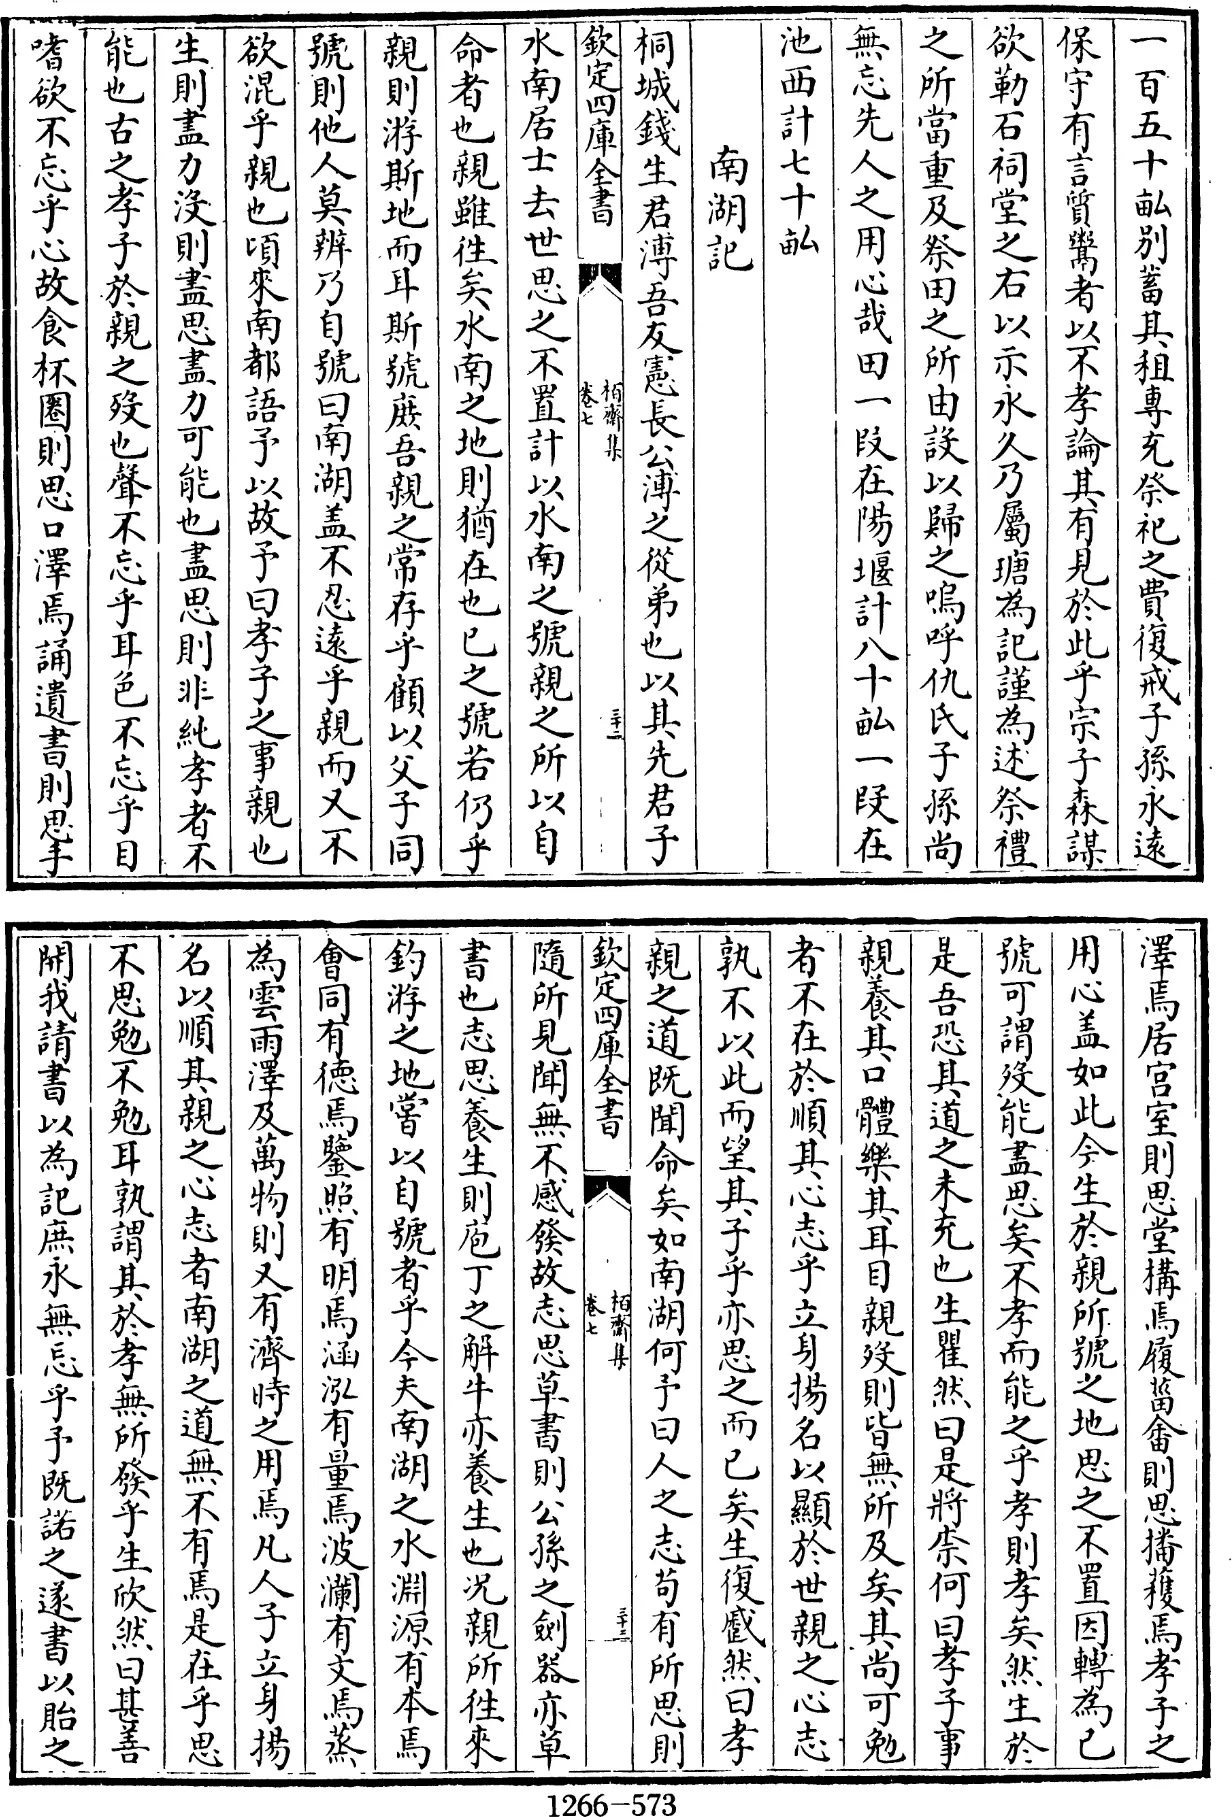 一百五十畝別蓄其租專充祭祀之費復戒子孫永遠
保守有言質鬻者以不孝論其有見於此乎宗子森謀
欲勒石祠堂之右以示永久乃屬瑭為記謹為述祭禮
之所當重及祭田之所由設以歸之嗚呼仇氏子孫尚
無忘先人之用心哉田一段在陽堰計八十畝一段在
池西計七十畝
南湖記
桐城錢生君溥吾友憲長公溥之從弟也以其先君子
欽定四庫全書
栢齋集
卷七
三十二
水南居士去世思之不置計以水南之號親之所以自
命者也親雖徃矣水南之地則猶在也已之號若仍乎
親則游斯地而耳斯號庶吾親之常存乎顧以父子同
號則他人莫辨乃自號曰南湖盖不忍遠乎親而又不
欲混乎親也頃來南都語予以故予曰孝子之事親也
生則盡力沒則盡思盡力可能也盡思則非純孝者不
能也古之孝子於親之歿也聲不忘乎耳色不忘乎目
嗜欲不忘乎心故食杯圈則思口澤焉誦遺書則思手
澤焉居宫室則思堂構焉履菑畬則思播穫焉孝子之
用心盖如此今生於親所號之地思之不置因轉為已
號可謂歿能盡思矣不孝而能之乎孝則孝矣然生於
是吾恐其道之未充也生瞿然曰是將柰何曰孝子事
親養其口體樂其耳目親歿則皆無所及矣其尚可勉
者不在於順其心志乎立身揚名以顯於世親之心志
孰不以此而望其子乎亦思之而已矣生復蹙然曰孝
親之道既聞命矣如南湖何予曰人之志苟有所思則
欽定四庫全書
栢齋集
卷七
三十三
隨所見聞無不感發故志思草書則公孫之劍器亦草
書也志思養生則庖丁之解牛亦養生也况親所徃來
釣游之地嘗以自號者乎今夫南湖之水淵源有本焉
會同有徳焉鑒照有明焉涵泓有量焉波瀾有文焉蒸
為雲雨澤及萬物則又有濟時之用焉凡人子立身揚
名以順其親之心志者南湖之道無不有焉是在乎思
不思勉不勉耳孰謂其於孝無所發乎生欣然曰甚善
開我請書以為記庶永無忘乎予既諾之遂書以貽之
1266-573